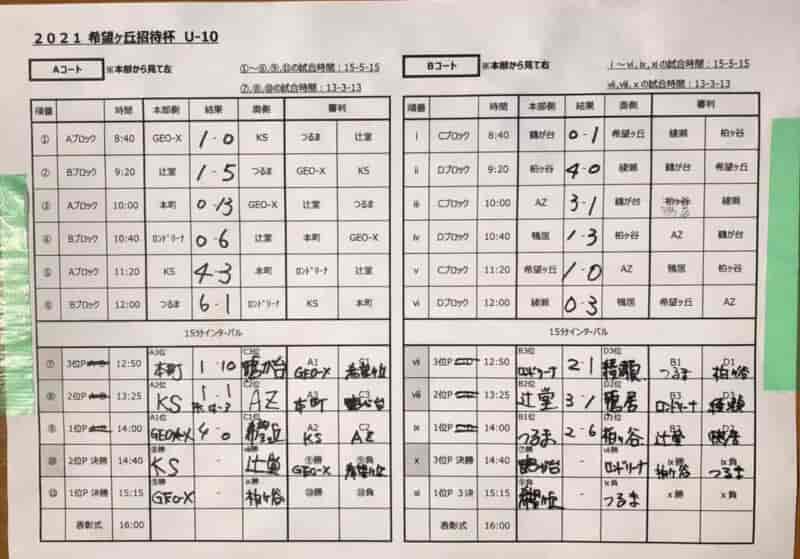 2021 希望ヶ丘招待杯 U-10
Aコート ※本部から見て左 ①～⑥,⑨,⑪の試合時間：15-5-15
⑦,⑧,⑩の試合時間：13-3-13
順番 時間 本部側 結果 奥側 審判
① Aブロック 8:40 GEO-X 1-0 KS つるま 辻堂
② Bブロック 9:20 辻堂 1-5 つるま GEO-X KS
③ Aブロック 10:00 本町 0-13 GEO-X 辻堂 つるま
④ Bブロック 10:40 ロンドリーナ 0-6 辻堂 本町 GEO-X
⑤ Aブロック 11:20 KS 4-3 本町 ロンドリーナ 辻堂
⑥ Bブロック 12:00 つるま 6-1 ロンドリーナ KS 本町
15分インターバル
⑦ 3位P 12:50 A3位 本町 1-10 C3位 鶴が台 A1 GEO-X C1 希望ヶ丘
⑧ 2位P 13:25 A2位 KS 1-1 C2位 AZ A3 本町 C3 鶴が台
⑨ 1位P 14:00 A1位 GEO-X 4-0 C1位 希望ヶ丘 A2 KS C2 AZ
⑩ 2位P 決勝 14:40 ⑧勝 KS - ⅷ勝 辻堂 ⑨勝 GEO-X ⑨負 希望ヶ丘
⑪ 1位P 決勝 15:15 ⑨勝 GEO-X - ⅸ勝 柏ヶ谷 ⑩勝 ⑩負
表彰式 16:00
Bコート ※本部から見て右 ⅰ～ⅵ,ⅸ,ⅺの試合時間：15-5-15
ⅶ,ⅷ,ⅹの試合時間：13-3-13
順番 時間 本部側 結果 奥側 審判
ⅰ Cブロック 8:40 鶴が台 0-1 希望ヶ丘 綾瀬 柏ヶ谷
ⅱ Dブロック 9:20 柏ヶ谷 4-0 綾瀬 鶴が台 希望ヶ丘
ⅲ Cブロック 10:00 AZ 3-1 鶴が台 柏ヶ谷 綾瀬
ⅳ Dブロック 10:40 鴨居 1-3 柏ヶ谷 AZ 鶴が台
ⅴ Cブロック 11:20 希望ヶ丘 1-0 AZ 鴨居 柏ヶ谷
ⅵ Dブロック 12:00 綾瀬 0-3 鴨居 希望ヶ丘 AZ
15分インターバル
ⅶ 3位P 12:50 B3位 ロンドリーナ 2-1 D3位 綾瀬 B1 つるま D1 柏ヶ谷
ⅷ 2位P 13:25 B2位 辻堂 3-1 D2位 鴨居 B3 ロンドリーナ D3 綾瀬
ⅸ 1位P 14:00 B1位 つるま 2-6 D1位 柏ヶ谷 B2 辻堂 D2 鴨居
ⅹ 3位P 決勝 14:40 ⑦勝 鶴が台 - ⅶ勝 ロンドリーナ ⅸ勝 柏ヶ谷 ⅸ負 つるま
ⅺ 1位P 3決 15:15 ⑨負 希望ヶ丘 - ⅸ負 つるま ⅹ勝 ⅹ負
表彰式 16:00